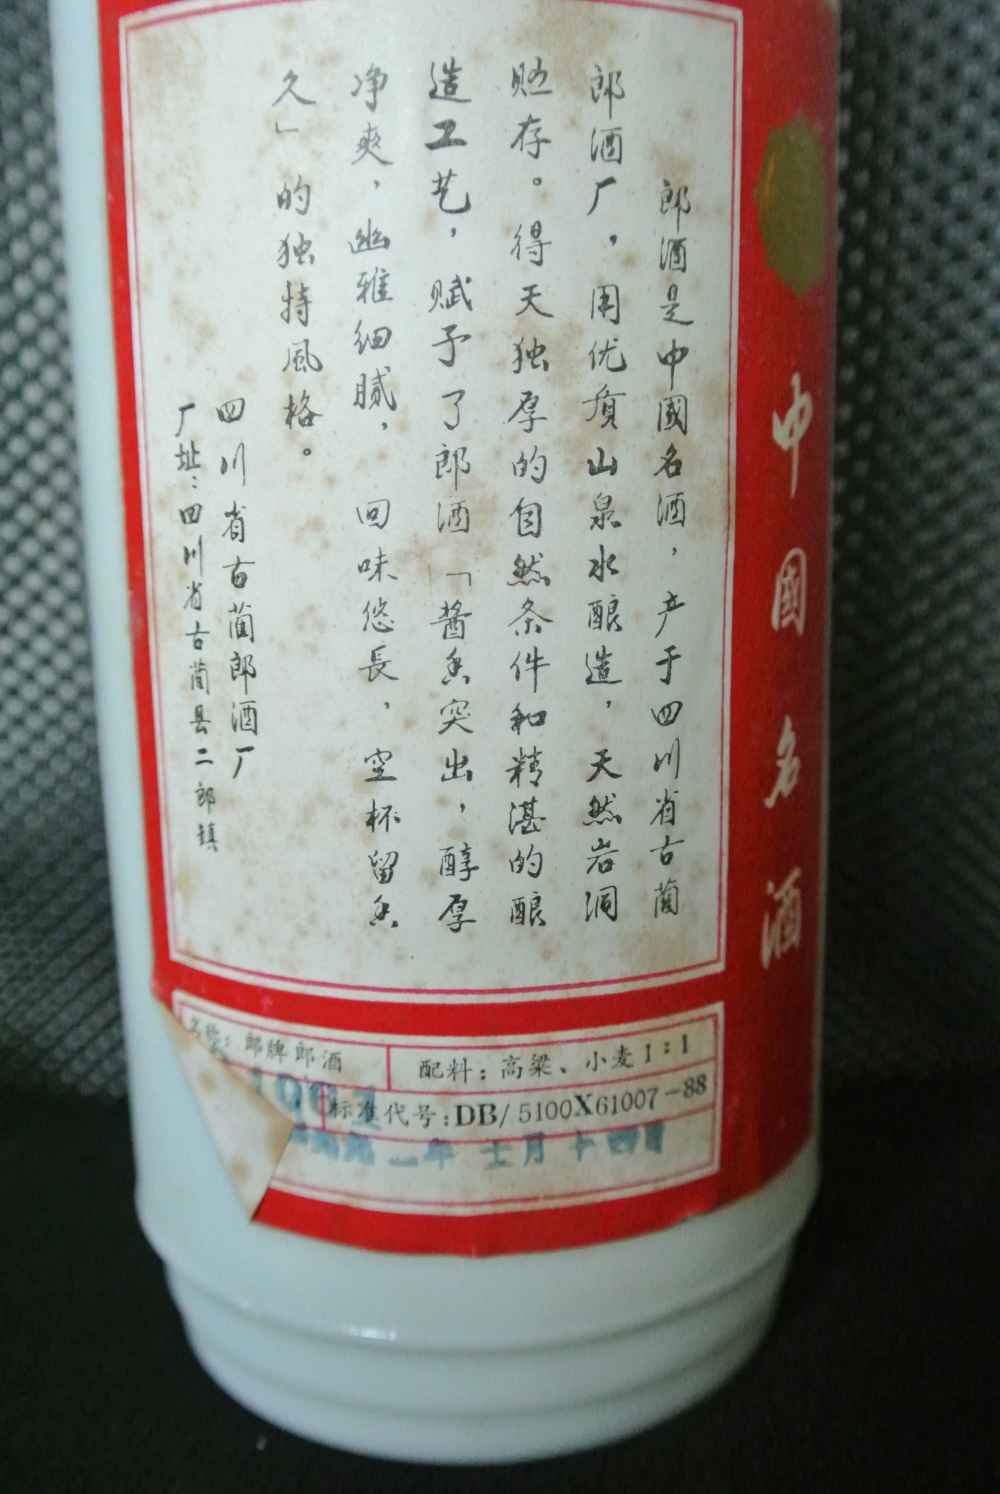 郎酒是中國名酒，产于四川省古蔺
郎酒厂，用优质山泉水酿造，天然岩洞
贮存。得天独厚的自然条件和精湛的酿
造工艺，赋予了郎酒「酱香突出，醇厚
净爽，幽雅细腻，回味悠長，空杯留香
久」的独特風格。
四川省古蔺郎酒厂
厂址：四川省古蔺县二郎镇
中國名酒
名称：郎牌郎酒
配料：高粱、小麦 1：1
标准代号：DB/5100X61007-88
一年十二月十四日